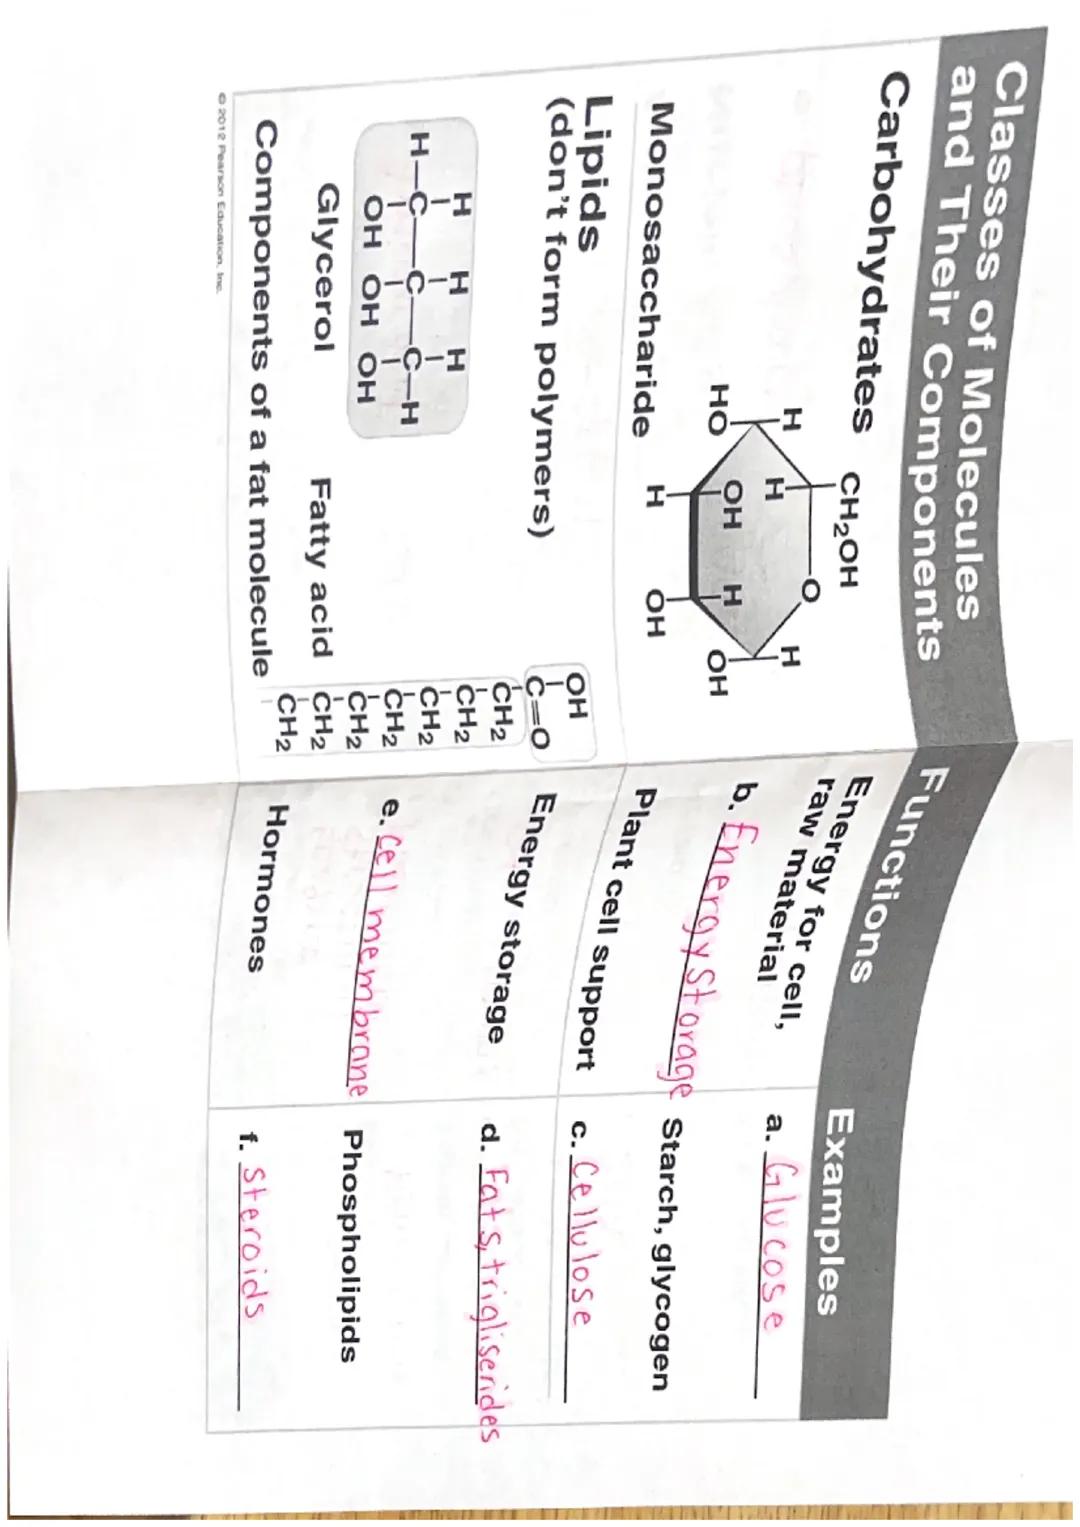 Classes of Molecules
and Their Components
Functions
Examples
Carbohydrates
CH₂OH
O
H
H
H
HO
OH
H
OH
H
OH
Monosaccharide
Energy for cell,
raw material
a. Glucose
b. Energy Storage
Starch, glycogen
Plant cell support
c. Cellulose
Lipids
(don't form polymers)
H
H
H
H—C—C—C—H
OH OH OH
Glycerol
OH
C=O
CH₂
CH₂
CH₂
CH₂
CH₂
CH₂
CH₂
Fatty acid
Components of a fat molecule
Energy storage
d. Fats, trigliserides
e. Cell membrane
Phospholipids
Hormones
f. Steroids
© 2012 Pearson Education, Inc.